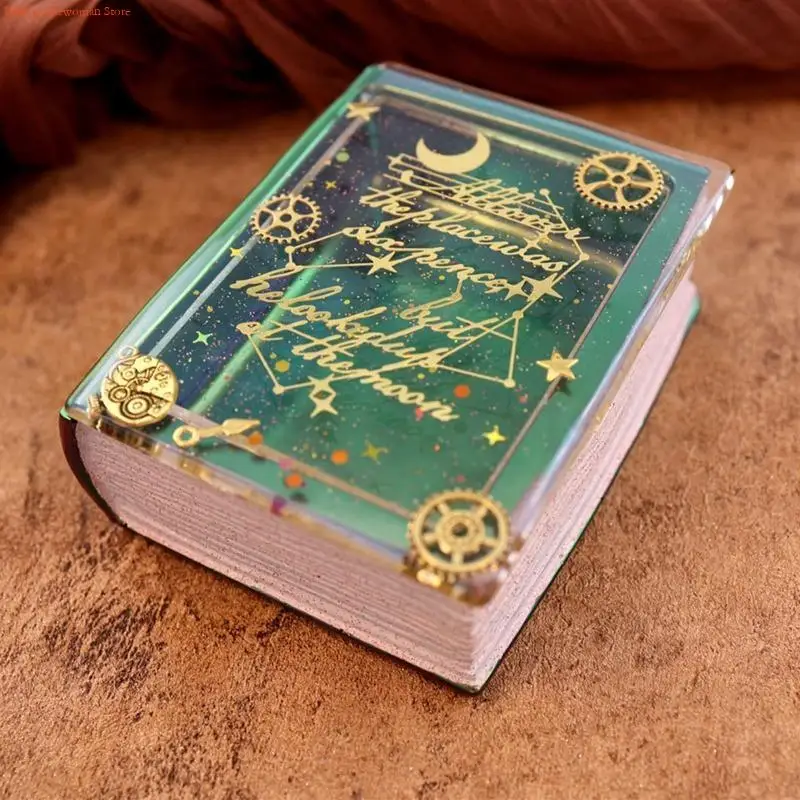 woman Store
Allover
the place was
six pence
but
he looked up
at the moon